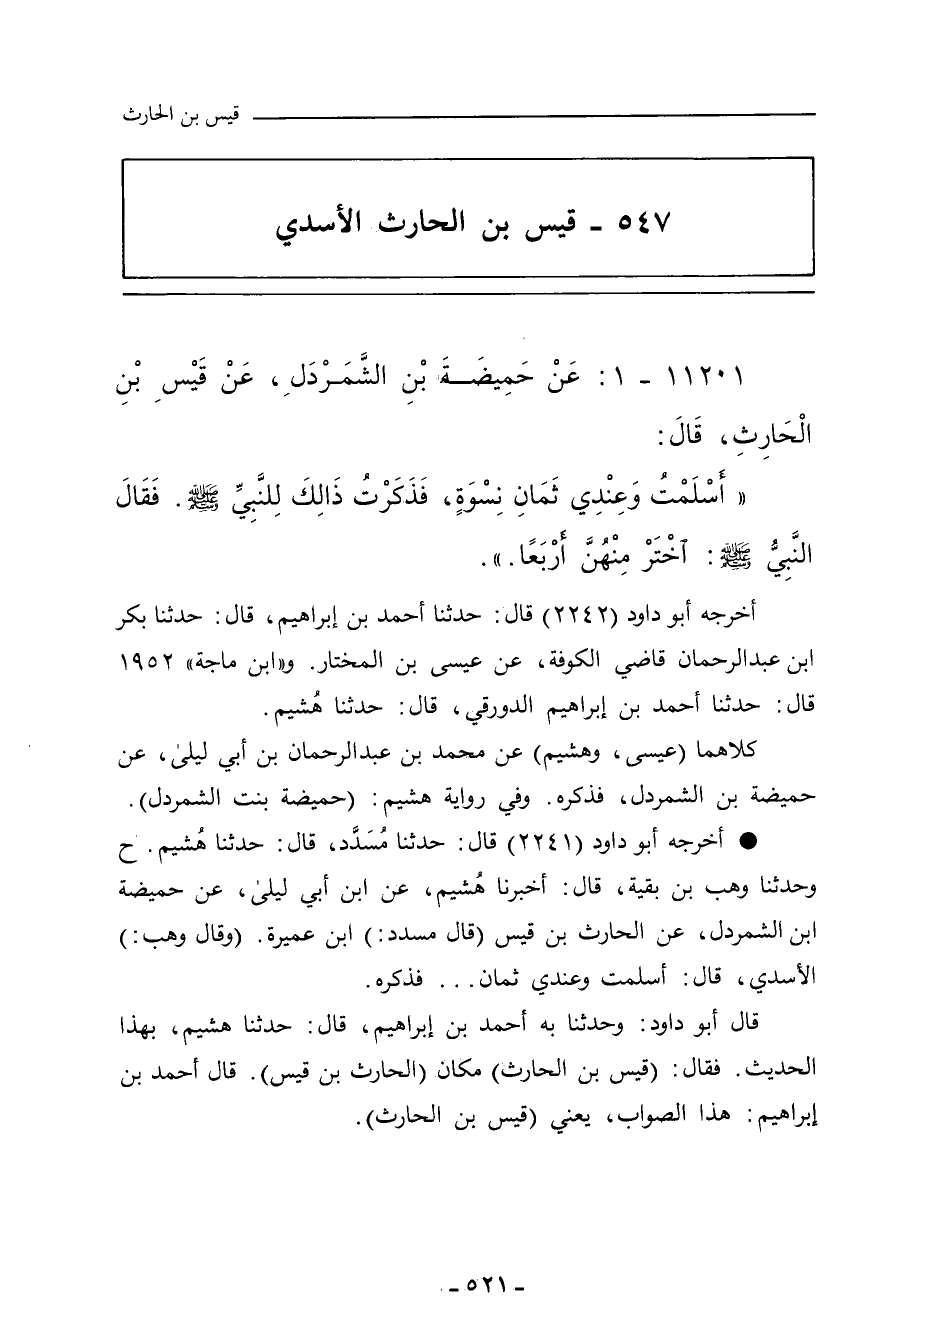 قيس بن الحارث
٥٤٧ ـ قيس بن الحارث الأسدي
١١٢٠١ ـ ١: عَنْ حَمِيضَةَ بْنِ الشَّمَرْدَلِ، عَنْ قَيْسِ بْنِ
الْحَارِثِ، قَالَ:
« أَسْلَمْتُ وَعِنْدِي ثَمَانِ نِسْوَةٍ، فَذَكَرْتُ ذَالِكَ لِلنَّبِيِّ ﷺ. فَقَالَ
النَّبِيُّ ﷺ: ٱخْتَرْ مِنْهُنَّ أَرْبَعًا.».
أخرجه أبو داود (٢٢٤٢) قال: حدثنا أحمد بن إبراهيم، قال: حدثنا بكر
ابن عبدالرحمان قاضي الكوفة، عن عيسى بن المختار. و«ابن ماجة» ١٩٥٢
قال: حدثنا أحمد بن إبراهيم الدورقي، قال: حدثنا هُشيم.
كلاهما (عيسى، وهشيم) عن محمد بن عبدالرحمان بن أبي ليلىٰ، عن
حميضة بن الشمردل، فذكره. وفي رواية هشيم: (حميضة بنت الشمردل).
● أخرجه أبو داود (٢٢٤١) قال: حدثنا مُسَدَّد، قال: حدثنا هُشيم. ح
وحدثنا وهب بن بقية، قال: أخبرنا هُشيم، عن ابن أبي ليلىٰ، عن حميضة
ابن الشمردل، عن الحارث بن قيس (قال مسدد:) ابن عميرة. (وقال وهب:)
الأسدي، قال: أسلمت وعندي ثمان... فذكره.
قال أبو داود: وحدثنا به أحمد بن إبراهيم، قال: حدثنا هشيم، بهذا
الحديث. فقال: (قيس بن الحارث) مكان (الحارث بن قيس). قال أحمد بن
إبراهيم: هذا الصواب، يعني (قيس بن الحارث).
ـ ٥٢١ ـ